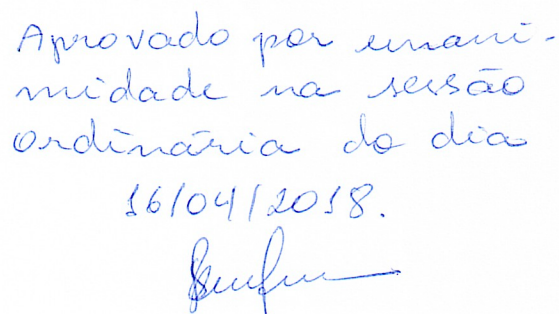 Aprovado por unani-
midade na sessão
ordinária do dia
16/04/2018.